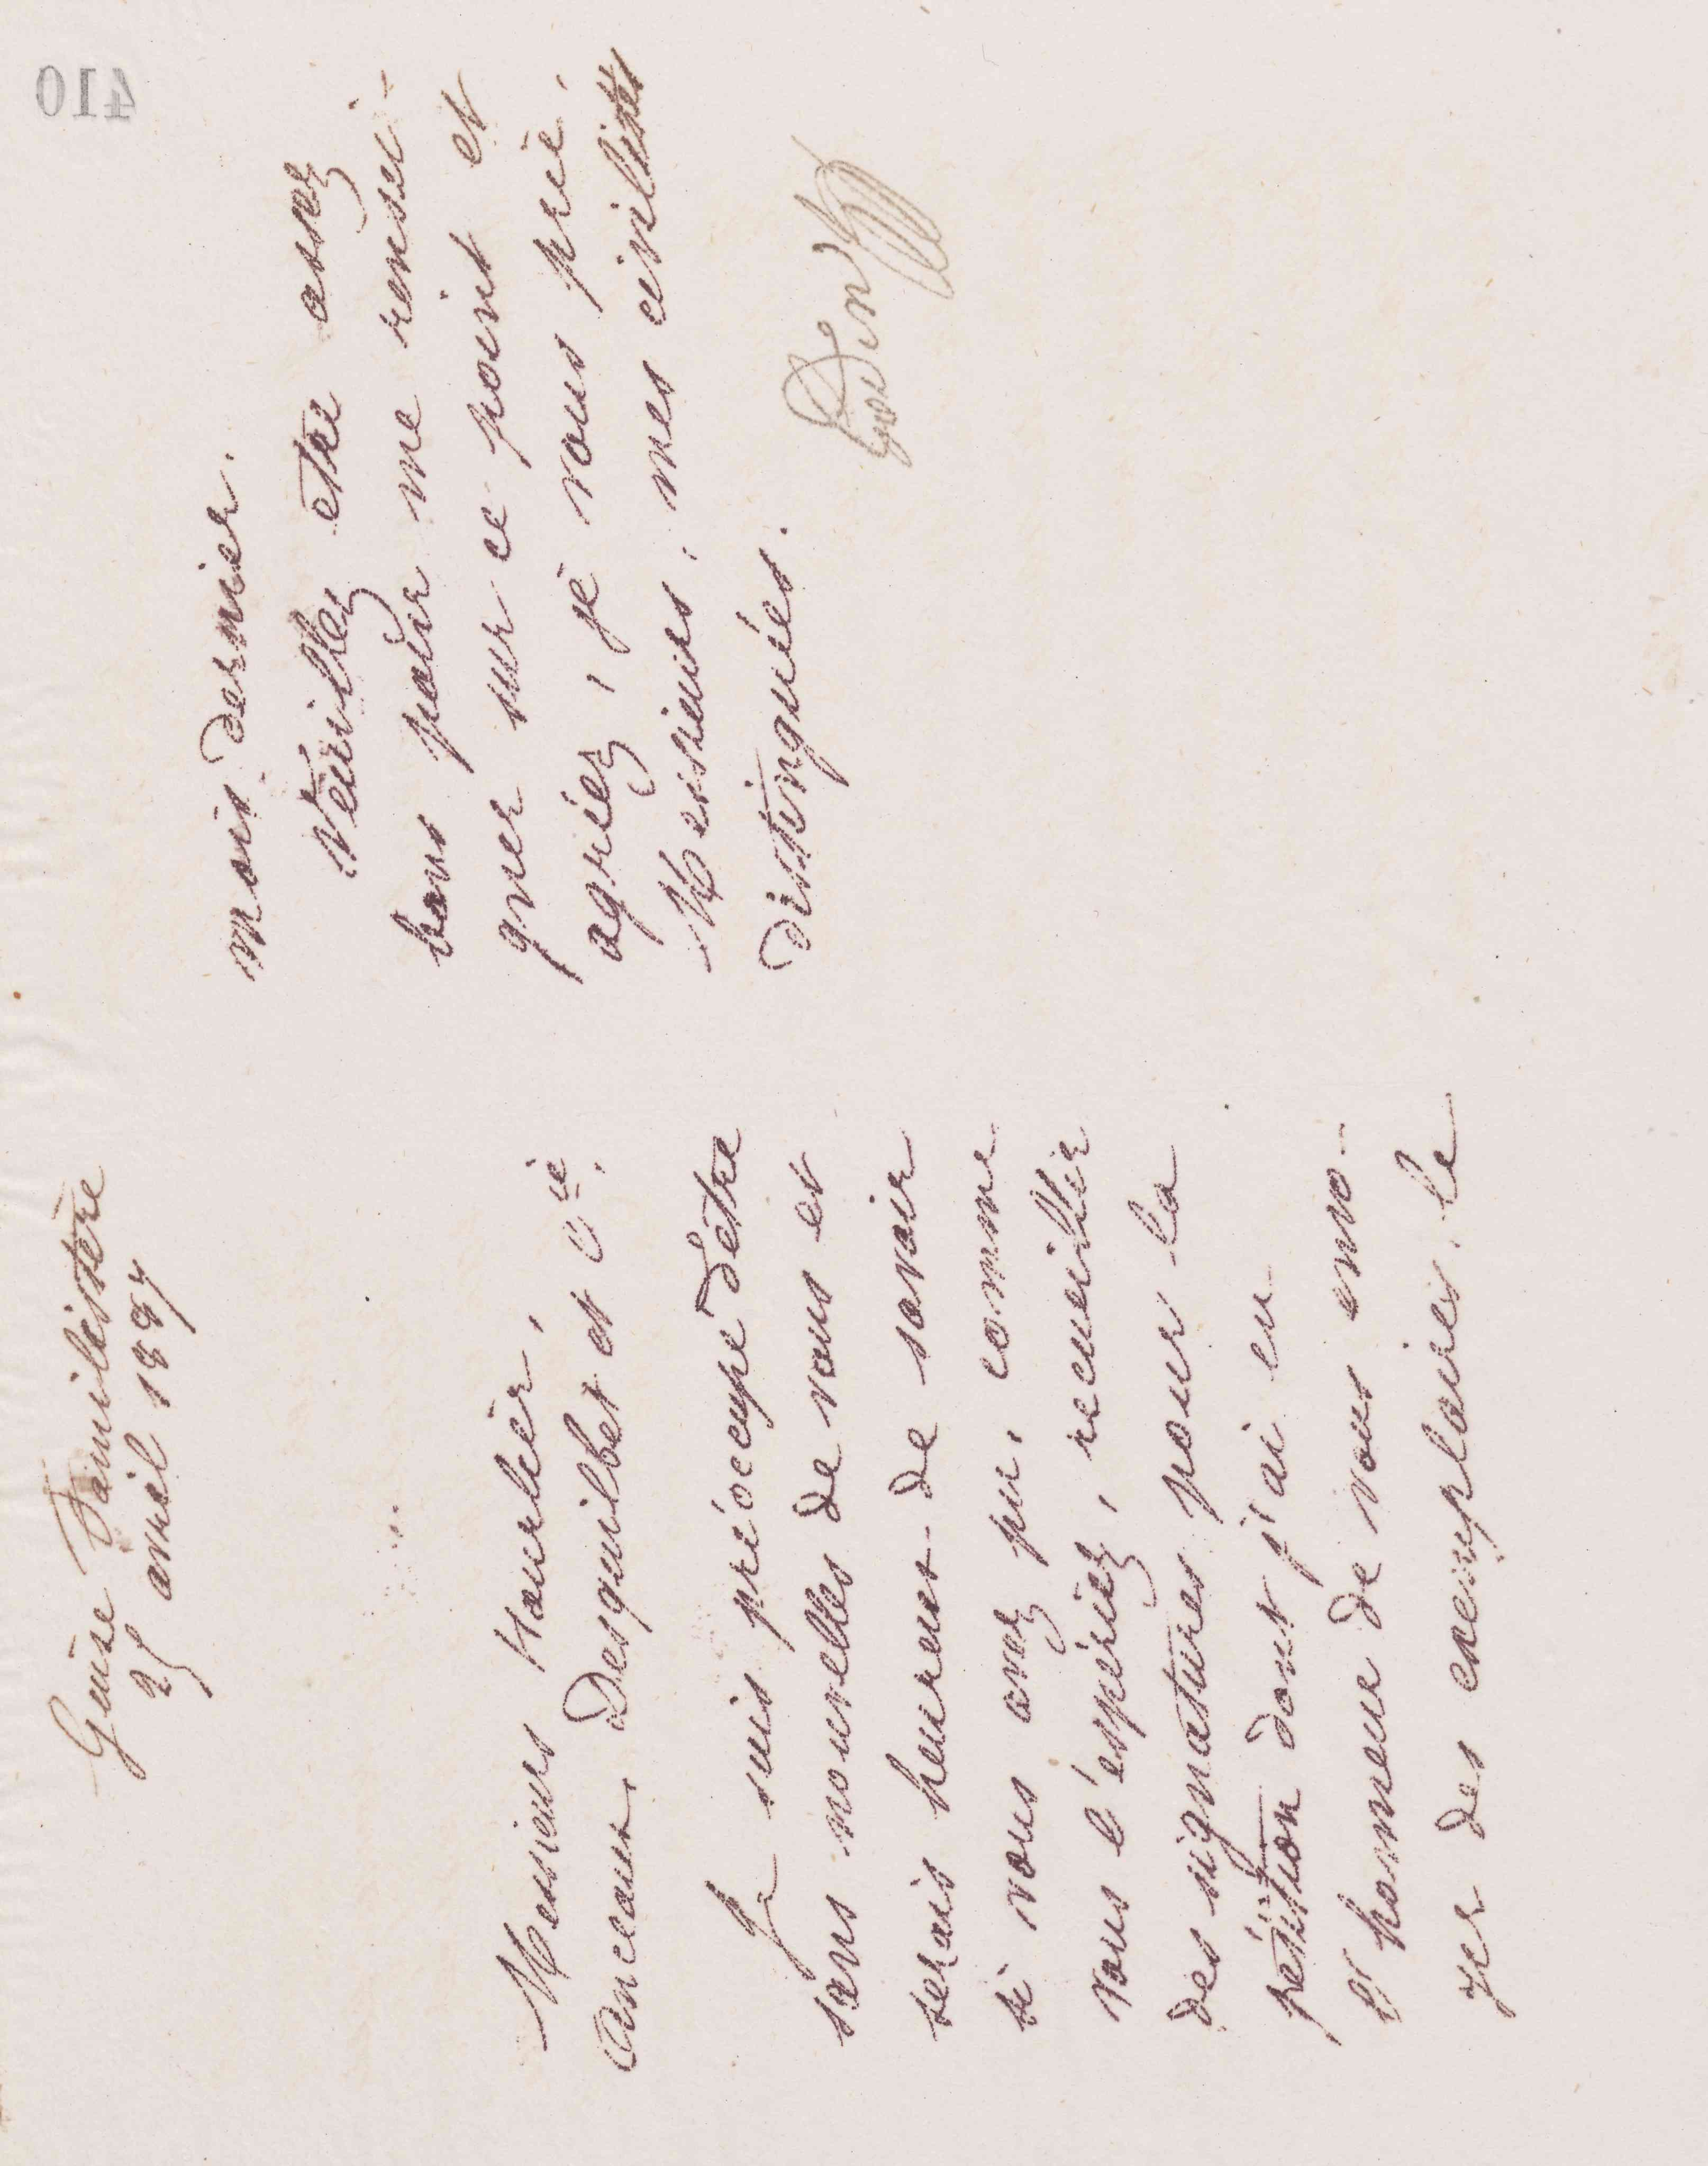 Guise Familistère
25 avril 1887
Messieurs Hourlier,
Anceaux, Desquilbet et Cie,
Je suis préoccupé d'être
sans nouvelles de vous et
serais heureux de savoir
si vous avez pu, comme
vous l'espériez, recueillir
des signatures pour la
pétition dont j'ai eu
l'honneur de vous envo-
yer des exemplaires, le
mois dernier.
Veuillez être assez
bons pour me rensei-
gner sur ce point et
agréez, je vous prie,
Messieurs, mes civilités
distinguées.
Godin
410